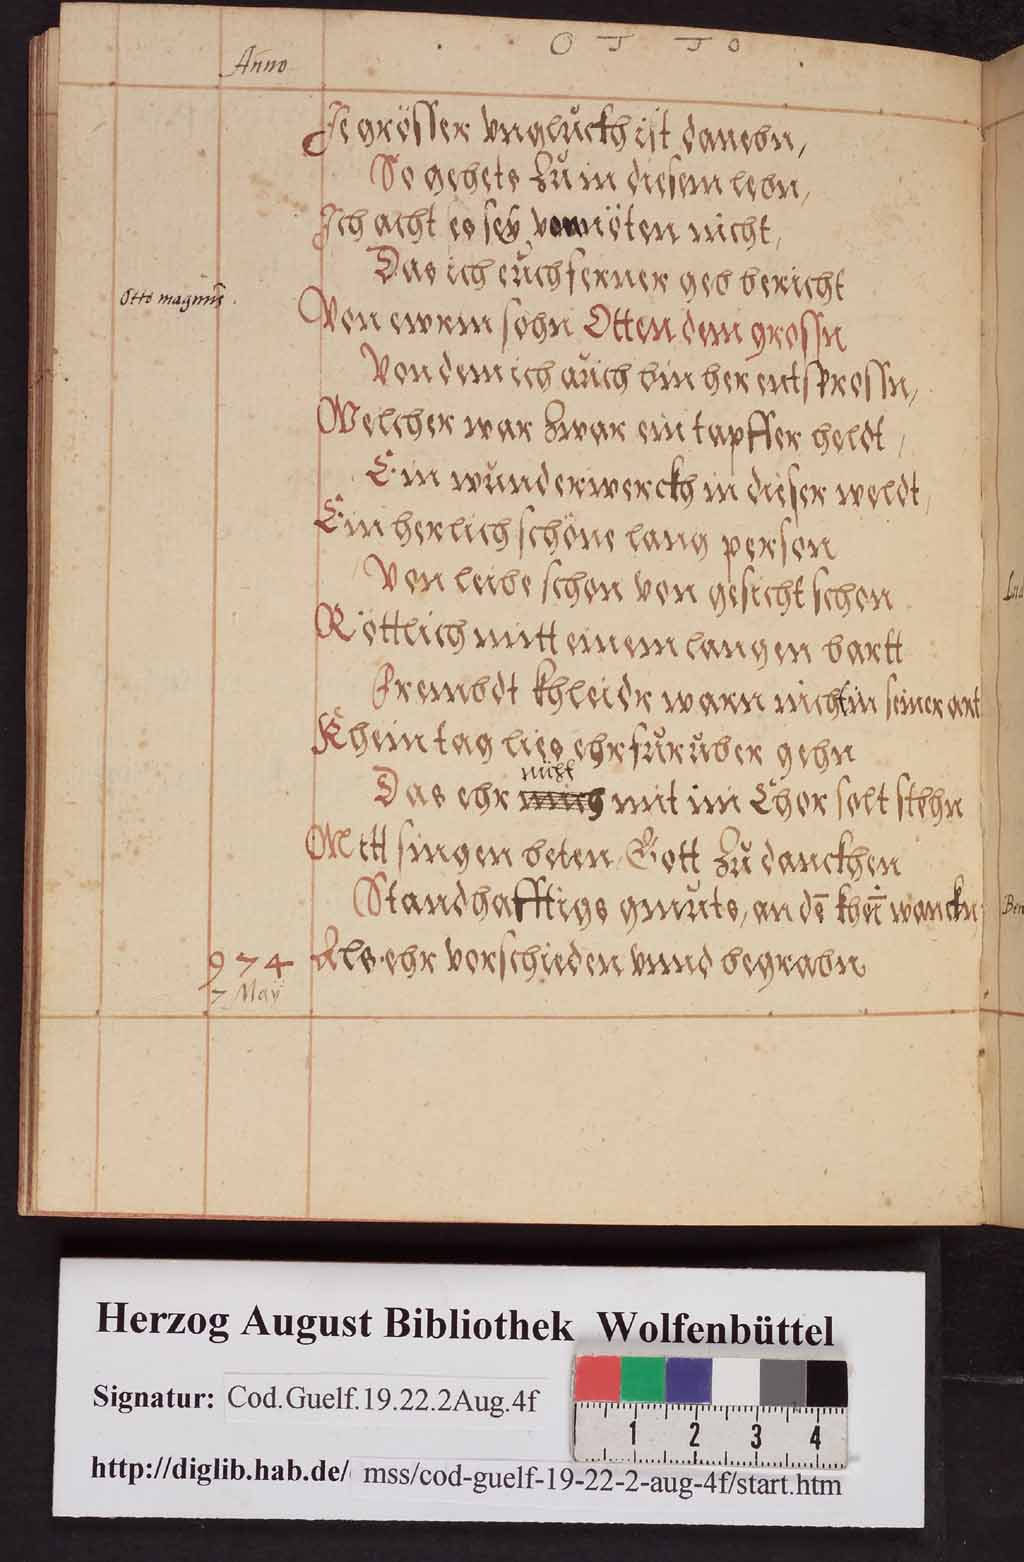 O T T O
Anno
Je grösser vnglückh ist danebn,
So gehets zů in diesem lebn,
Ich acht es seÿ vonnöten nicht,
Das ich eůch ferner geb bericht
Otto magnus.
Von ewrm sohn Otten dem grossn
Von dem ich aůch bin her entsprossn,
Welcher war zwar ein tapffer heldt,
Ein wůnderwerckh in dieser weldt,
Ein herlich schöne lang person
Von leibe schon von gesicht schon
Röttlich mitt einem langen bartt
Frembdt khleidr warn nicht in seiner art
Khein tag lies ehr fůrůber gehn
nicht
Das ehr mich mit im Chor solt stehn
Mitt singen beten Gott zů danckhen
Standhafftigs gmůts, an dē kheī wanckn
974 Als ehr vorschieden vnnd begrabn
7 Maÿ
Herzog August Bibliothek Wolfenbüttel
Signatur: Cod.Guelf.19.22.2Aug.4f
1 2 3 4
http://diglib.hab.de/ mss/cod-guelf-19-22-2-aug-4f/start.htm